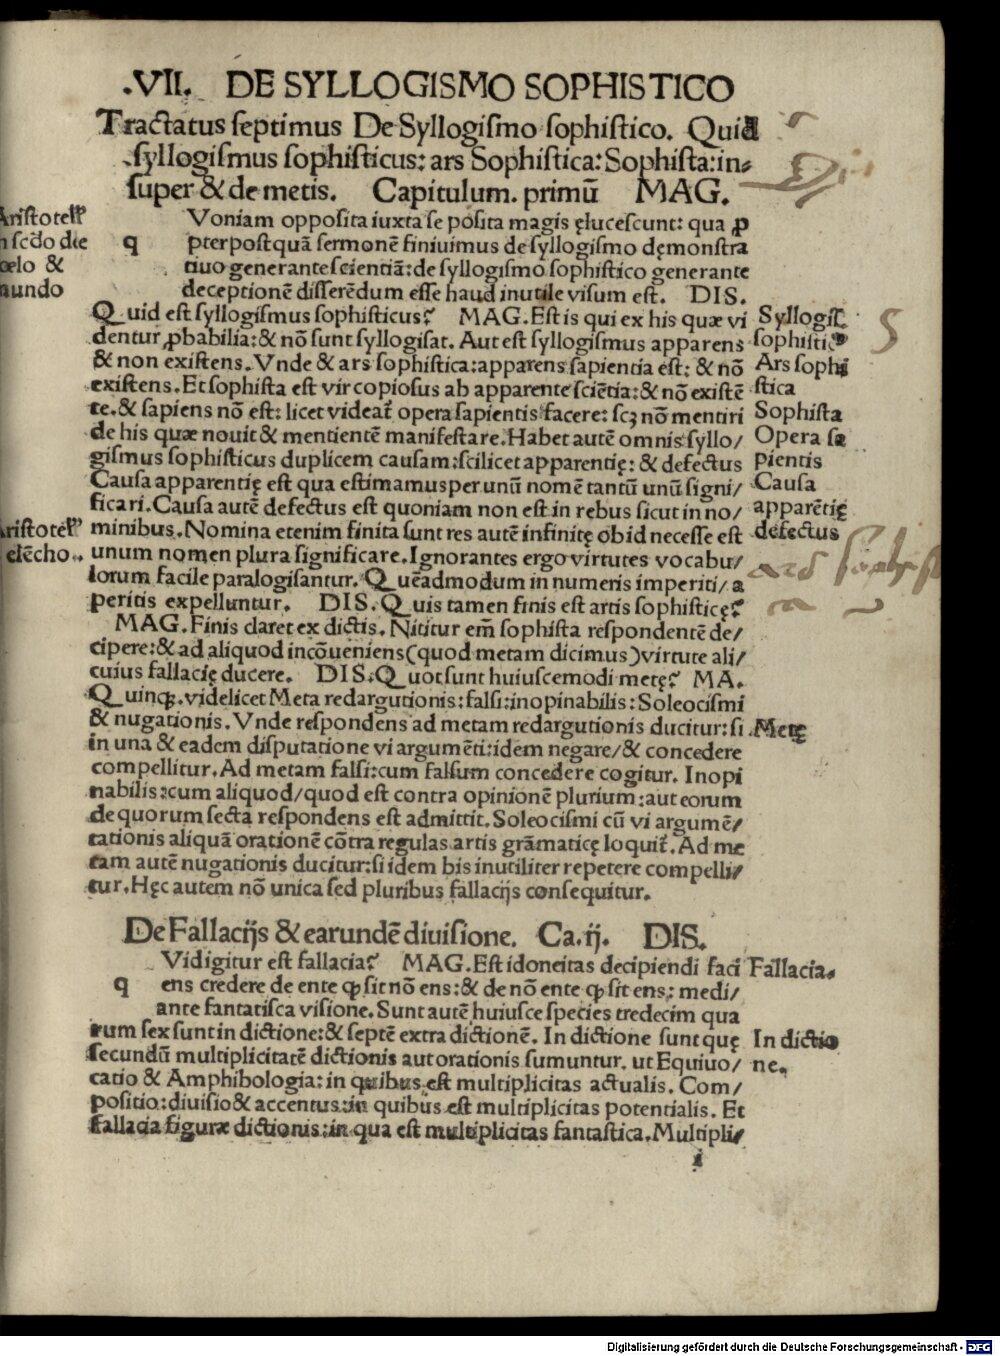 .VII. DE SYLLOGISMO SOPHISTICO
Tractatus ſeptimus De Syllogiſmo ſophiſtico. Quid
ſyllogiſmus ſophiſticus: ars Sophiſtica: Sophiſta: in-
ſuper & de metis. Capitulum. primū MAG.
Voniam oppoſita iuxta ſe poſita magis ęluceſcunt: qua ꝓ
q pterpoſtquā ſermonē finiuimus de ſyllogiſmo dęmonſtra
tiuo generante ſcientiā: de ſyllogiſmo ſophiſtico generante
deceptionē diſſerēdum eſſe haud inutile viſum eſt. DIS.
Quid eſt ſyllogiſmus ſophiſticus? MAG. Eſt is qui ex his quæ vi
dentur ꝓbabilia: & nō ſunt ſyllogiſat. Aut eſt ſyllogiſmus apparens
& non exiſtens. Vnde & ars ſophiſtica: apparens ſapientia eſt: & nō
exiſtens. Et ſophiſta eſt vir copioſus ab apparente ſciētia: & nō exiſtē
te. & ſapiens nō eſt: licet videat᷑ opera ſapientis facere: ſcȝ nō mentiri
de his quæ nouit & mentientē manifeſtare. Habet autē omnis ſyllo/
giſmus ſophiſticus duplicem cauſam: ſcilicet apparentię: & defectus
Cauſa apparentię eſt qua eſtimamus per unū nomē tantū unū ſigni/
ficari. Cauſa autē defectus eſt quoniam non eſt in rebus ſicut in no/
minibus. Nomina etenim finita ſunt res autē infinitę ob id neceſſe eſt
unum nomen plura ſignificare. Ignorantes ergo virtutes vocabu/
lorum facile paralogiſantur. Quēadmodum in numeris imperiti/ a
peritis expelluntur. DIS. Quis tamen finis eſt artis ſophiſticę?
MAG. Finis claret ex dictis. Nititur em̄ ſophiſta reſpondentē de/
cipere: & ad aliquod incōueniens (quod metam dicimus) virtute ali/
cuius fallacię ducere. DIS. Quot ſunt huiuſcemodi metę? MA.
Quinqꝫ. videlicet Meta redargutionis: falſi: inopinabilis: Soleociſmi
& nugationis. Vnde reſpondens ad metam redargutionis ducitur: ſi
in una & eadem diſputatione vi argumēti: idem negare/ & concedere
compellitur. Ad metam falſi: cum falſum concedere cogitur. Inopi
nabilis: cum aliquod/ quod eſt contra opinionē plurium: aut eorum
de quorum ſecta reſpondens eſt admittit. Soleociſmi cū vi argumē/
tationis aliquā orationē cōtra regulas artis grāmaticę loquit᷑. Ad me
tam autē nugationis ducitur: ſi idem bis inutiliter repetere compelli/
tur. Hęc autem nō unica ſed pluribus fallacijs conſequitur.
De Fallacijs & earundē diuiſione. Ca. ij. DIS.
Vidigitur eſt fallacia? MAG. Eſt idoneitas decipiendi faci
q ens credere de ente ꝙ ſit nō ens: & de nō ente ꝙ ſit ens: medi/
ante fantaſtica viſione. Sunt autē huiuſce ſpecies tredecim qua
rum ſex ſunt in dictione: & ſeptē extra dictionē. In dictione ſunt quę
ſecundū multiplicitatē dictionis aut orationis ſumuntur. ut Equiuo/
catio & Amphibologia: in quibus eſt multiplicitas actualis. Com/
poſitio: diuiſio & accentus: in quibus eſt multiplicitas potentialis. Et
fallacia figuræ dictionis: in qua eſt multiplicitas fantaſtica. Multipli/
i
Ariſtotel᷑
n ſcdo de
celo &
mundo
Ariſtotel᷑
elēcho.
Syllogiſ.
ſophiſtic⁹
Ars ſophi
ſtica
Sophiſta
Opera ſa
pientis
Cauſa
apparētię
defectus
Metę
Fallacia.
In dictio
ne.
5
ars ſophiſti
Digitalisierung gefördert durch die Deutsche Forschungsgemeinschaft - DFG